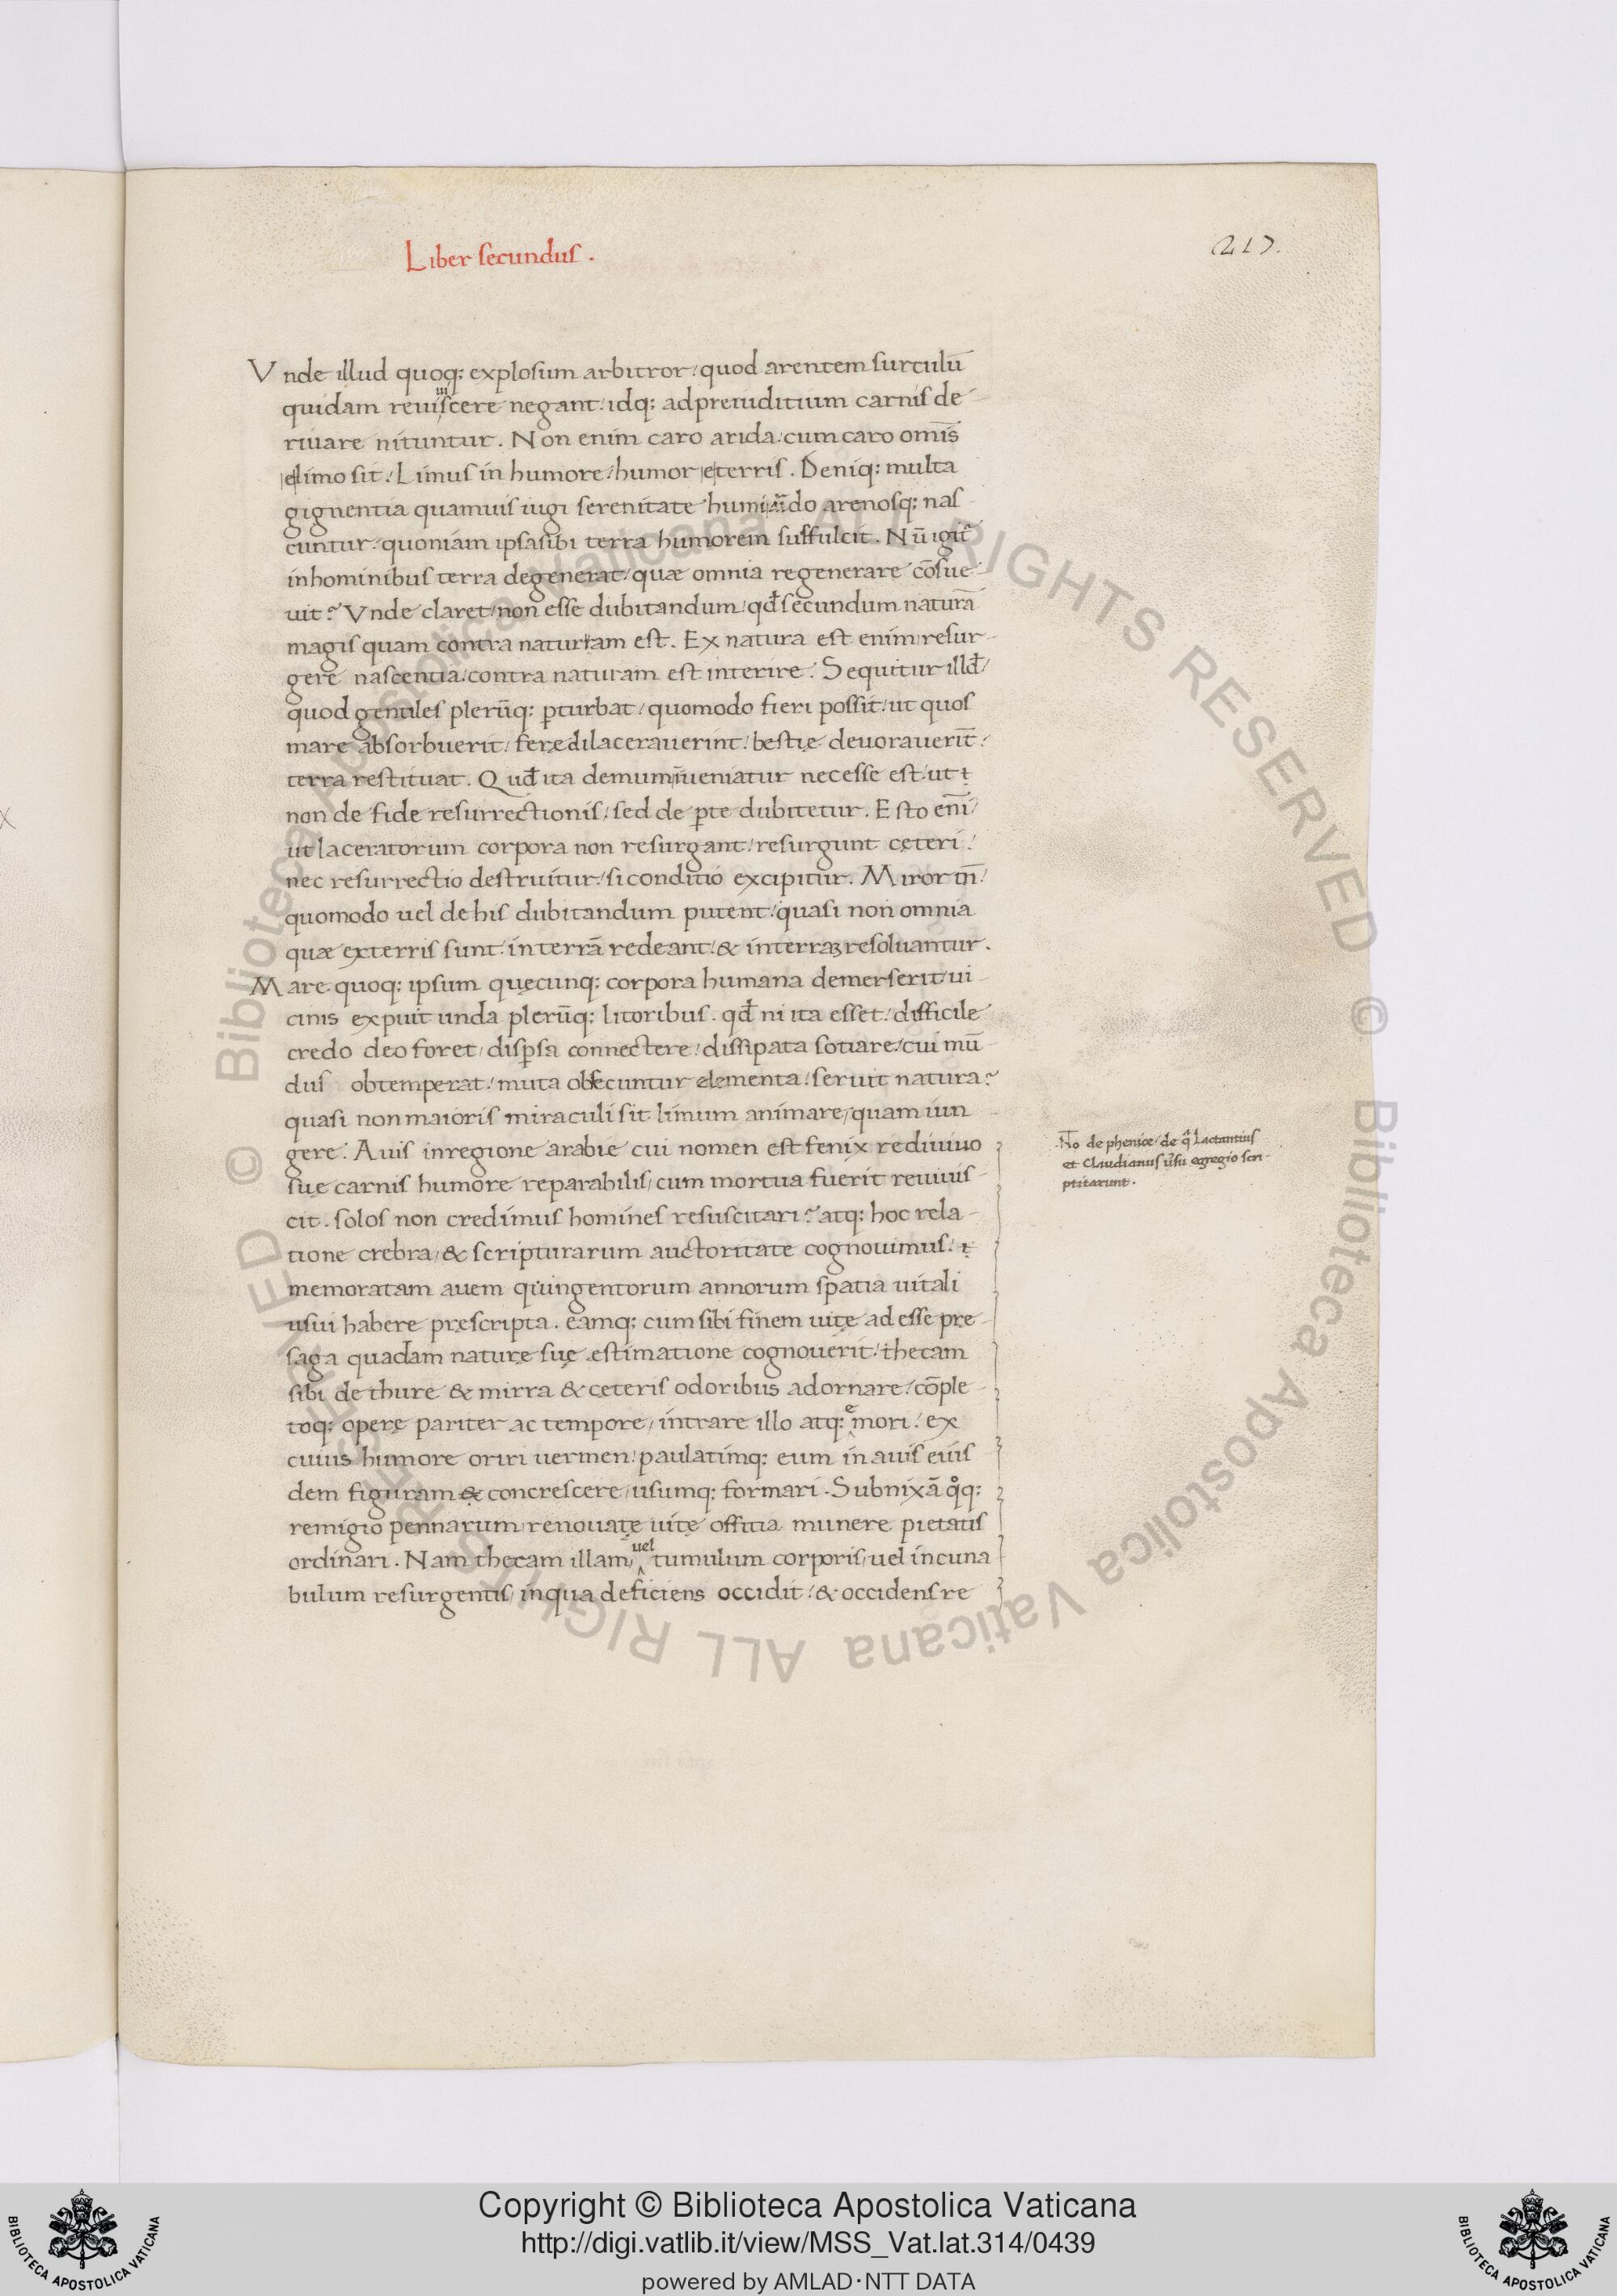 Liber secundus .
217.
Vnde illud quoq; explosum arbitror / quod arentem surculū
quidam reuiuiscere negant / idq; ad preiuditium carnis de-
riuare nituntur . Non enim caro arida / cum caro omīs
e limo sit / Limus in humore / humor e terris . Deniq; multa
gignentia quamuis iugi serenitate humi arido arenosq; nas
cuntur / quoniam ipsa sibi terra humorem suffulcit . Nū igit
in hominibus terra degenerat / quæ omnia regenerare cōsue-
uit ? Vnde claret / non esse dubitandum / qđ secundum naturā
magis quam contra naturam est . Ex natura est enim resur-
gere nascentia / contra naturam est interire . Sequitur illđ /
quod gentiles plerūq; pturbat / quomodo fieri possit / ut quos
mare absorbuerit / ferę dilacerauerint / bestię deuorauerīt /
terra restituat . Quđ ita demum īueniatur necesse est / ut
non de fide resurrectionis / sed de pte dubitetur . Esto enī /
ut laceratorum corpora non resurgant / resurgunt cęteri /
nec resurrectio destruitur / si conditio excipitur . Miror tn̄ /
quomodo uel de his dubitandum putent / quasi non omnia
quæ ex terris sunt / in terrā redeant / & in terraꝫ resoluantur .
Mare quoq; ipsum quęcunq; corpora humana demerserit / ui-
cinis expuit unda plerūq; litoribus . qđ ni ita esset / difficile
credo deo foret / dispsa connectere / dissipata sotiare / cui mū
dus obtemperat / muta obsecuntur elementa / seruit natura ?
quasi non maioris miraculi sit limum animare / quam iun-
gere . Auis in regione arabie cui nomen est fenix rediuiuo
suę carnis humore reparabilis / cum mortua fuerit reuiuis-
cit . solos non credimus homines resuscitari ? atq; hoc rela-
tione crebra / & scripturarum auctoritate cognouimus /
memoratam auem quingentorum annorum spatia uitali
usui habere pręscripta . eamq; cum sibi finem uitę ad esse pre-
saga quadam naturę suę estimatione cognouerit / thecam
sibi de thure & mirra & ceteris odoribus adornare / cōple-
toq; opere pariter ac tempore / intrare illo atq; emori / ex
cuius humore oriri uermen / paulatimq; eum in auis eius
dem figuram & concrescere / usumq; formari . Subnixā qͦq;
remigio pennarum renouatę uitę offitia munere pietatis
ordinari . Nam thecam illam / uel tumulum corporis / uel incuna
bulum resurgentis / in qua deficiens occidit / & occidens re
No de phenice / de q̄ Lactantius
et Claudianus ūsu egregio scri-
ptitarunt .
© Biblioteca Apostolica Vaticana ALL RIGHTS RESERVED © Biblioteca Apostolica Vaticana ALL RIGHTS RESERVED
Copyright © Biblioteca Apostolica Vaticana
http://digi.vatlib.it/view/MSS_Vat.lat.314/0439
powered by AMLAD·NTT DATA
BIBLIOTECA APOSTOLICA VATICANA
BIBLIOTECA APOSTOLICA VATICANA